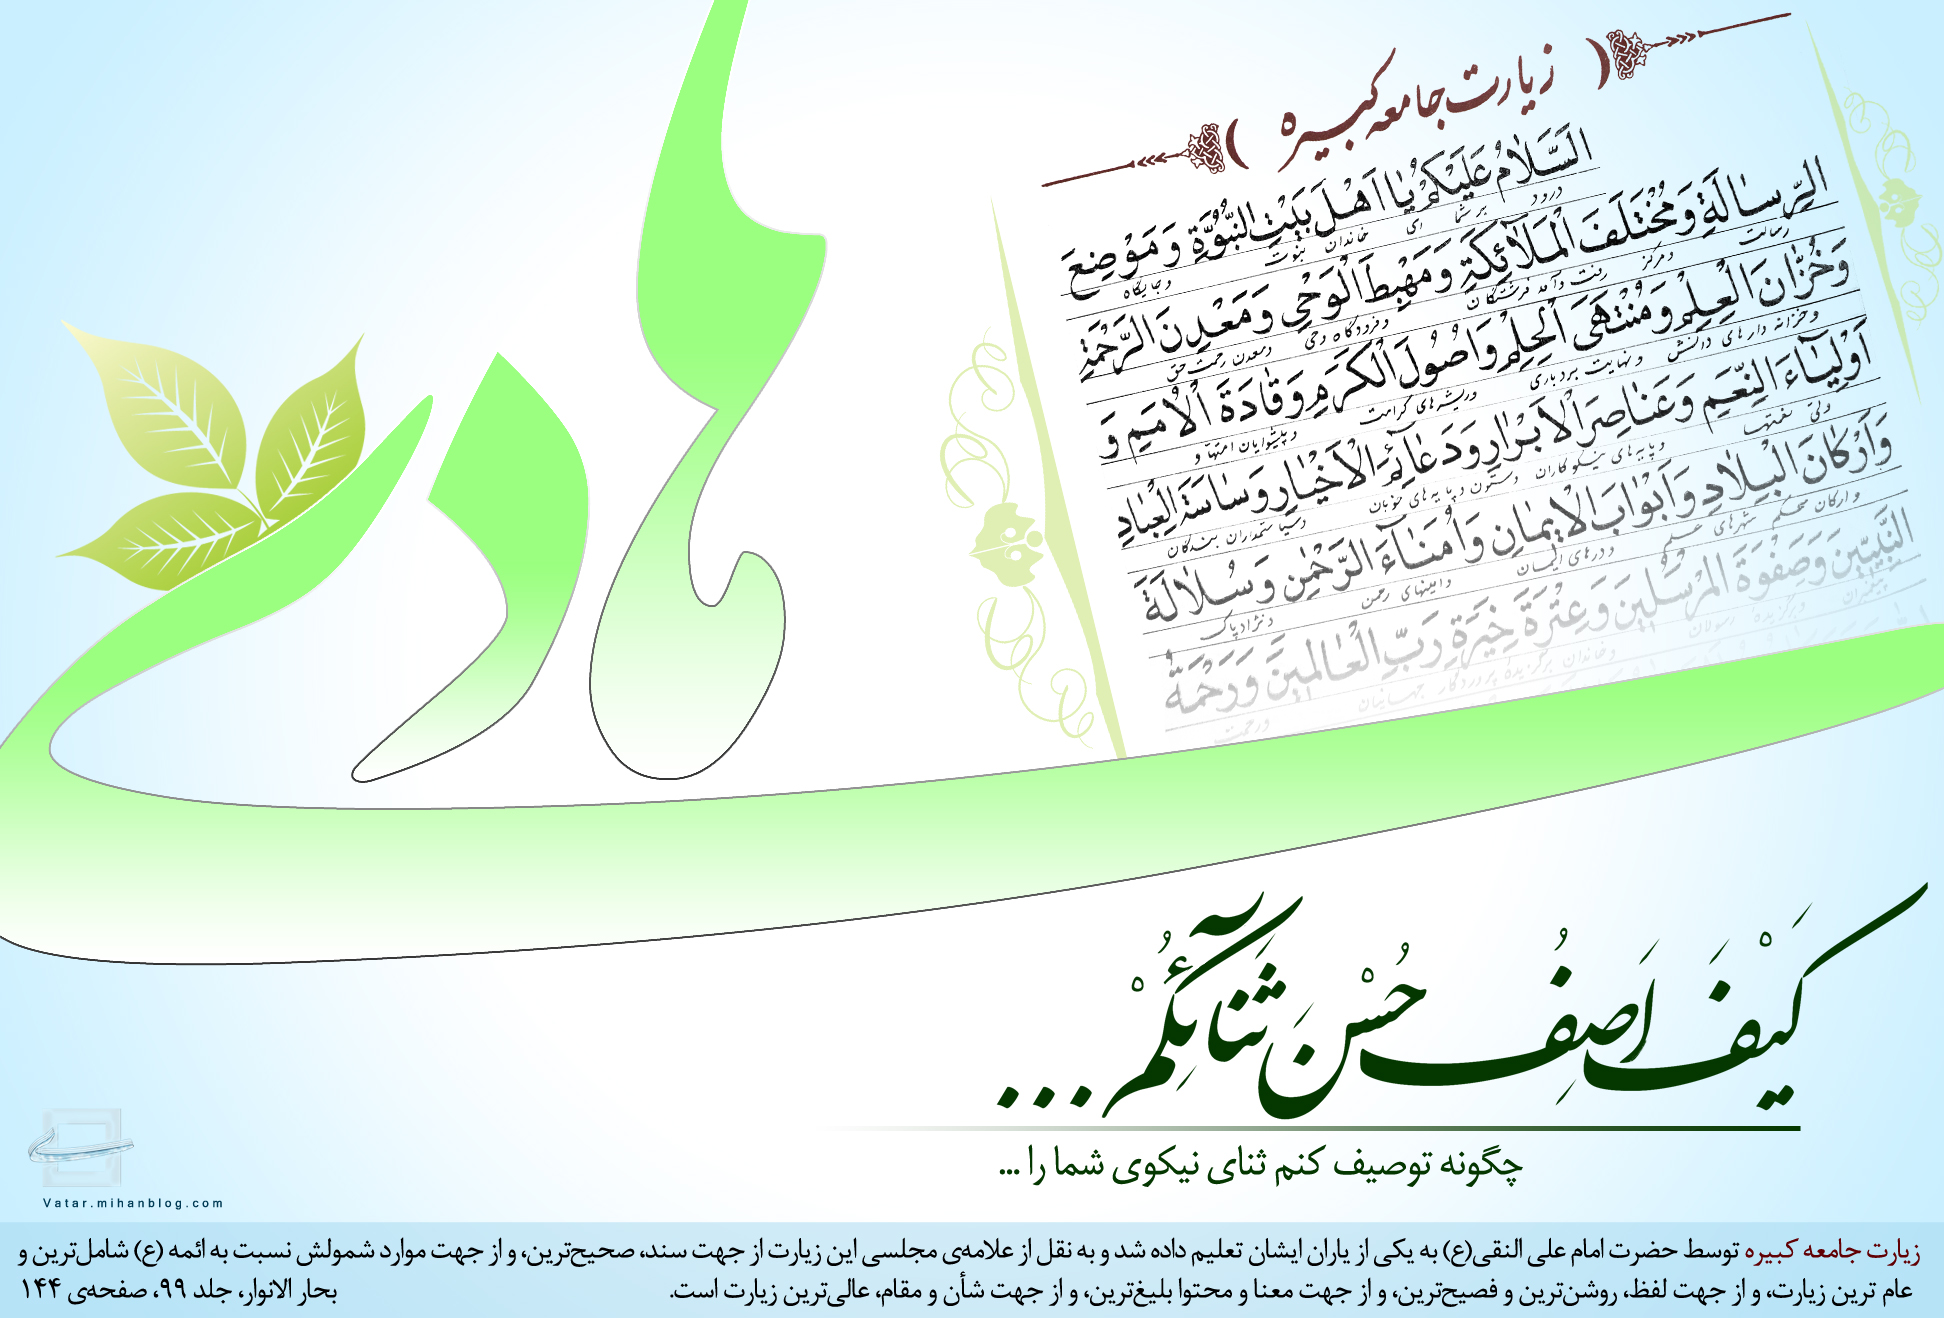 هادی
زیارت جامعه کبیره
اَلسَّلامُ عَلَیْکُمْ یا اَهْلَ بَیْتِ النُّبُوَّةِ وَ مَوْضِعَ
درود بر شما ای خاندان نبوت و جایگاه
الرِّسالَةِ وَ مُخْتَلَفَ الْمَلآئِکَةِ وَ مَهْبِطَ الْوَحْیِ وَ مَعْدِنَ الرَّحْمَةِ
رسالت و مرکز رفت و آمد فرشتگان و فرودگاه وحی و معدن رحمت حق
وَ خُزّانَ الْعِلْمِ وَ مُنْتَهَی الْحِلْمِ وَ اُصُولَ الْکَرَمِ وَ قادَةَ الْاُمَمِ وَ
و خزانه دارهای دانش و نهایت بردباری و ریشه‌های کرامت و پیشوایان امتها و
اَوْلِیآءَ النِّعَمِ وَ عَناصِرَ الْاَبْرارِ وَ دَعآئِمَ الْاَخْیارِ وَ ساسَةَ الْعِبادِ
ولی نعمتها و پایه‌های نیکوکاران و ستون و پایه‌های خوبان و سیاستمداران بندگان
وَ اَرْکانَ الْبِلادِ وَ اَبْوابَ الْایمانِ وَ اُمَنآءَ الرَّحْمٰنِ وَ سُلالَةَ
و ارکان محکم شهرهای و درهای ایمان و امینهای رحمن و نژاد پاک
النَّبِیّینَ وَ صَفْوَةَ الْمُرْسَلینَ وَ عِتْرَةَ خِیَرَةِ رَبِّ الْعالَمینَ وَ رَحْمَةُ
پیغمبران و برگزیده رسولان و خاندان برگزیدۀ پروردگار جهانیان و رحمت
کَیْفَ اَصِفُ حُسْنَ ثَنآئِکُمْ ...
چگونه توصیف کنم ثنای نیکوی شما را ...
Vatar.mihanblog.com
زیارت جامعه کبیره توسط حضرت امام علی النقی(ع) به یکی از یاران ایشان تعلیم داده شد و به نقل از علامه‌ی مجلسی این زیارت از جهت سند، صحیح‌ترین، و از جهت موارد شمولش نسبت به ائمه (ع) شامل‌ترین و
عام ترین زیارت، و از جهت لفظ، روشن‌ترین و فصیح‌ترین، و از جهت معنا و محتوا بلیغ‌ترین، و از جهت شأن و مقام، عالی‌ترین زیارت است. بحار الانوار، جلد ۹۹، صفحه‌ی ۱۴۴